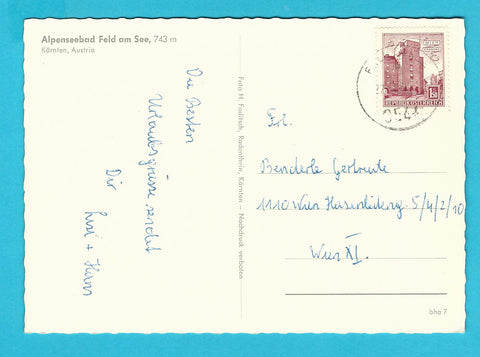 Alpenseebad Feld am See, 743 m
Kärnten, Austria
Die Besten
Urlaubsgrüsse sendet
Dir
Lusi + Hans
Foto H. Foditsch, Radenthein, Kärnten – Nachdruck verboten
REPUBLIK ÖSTERREICH
Frl.
Benderle Gertraute
1110 Wien Hasenleiteng. 5/4/2/10
Wien XI.
bha 7